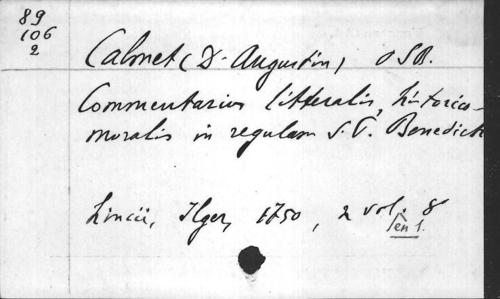 89
106
2
Calmet (D. Augustin) OSB.
Commentarius litteralis, historico-
moralis in regulam S. P. Benedicti
Lincii, Ilger, 1750, 2 vol. 8
en 1.